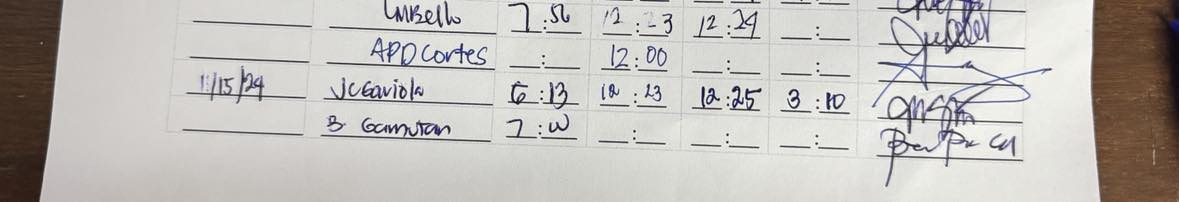 LMBello 7:56 12:23 12:24 __:__
APDCortes __:__ 12:00 __:__ __:__
11/15/24 JCGaviola 6:13 12:23 12:25 3:10
B Gamutan 7:00 __:__ __:__ __:__